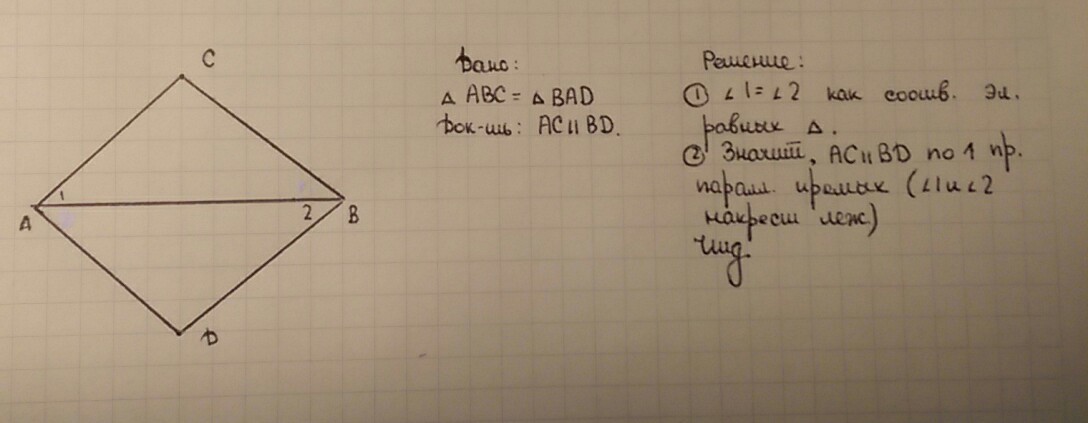 C
1
A
2
B
D
Дано:
△ ABC = △ BAD
Док-ть: AC || BD.
Решение:
① ∠1=∠2 как соотв. эл.
равных △.
② Значит, AC || BD по 1 пр.
паралл. прямых (∠1 и ∠2
накрест леж)
Чтд.